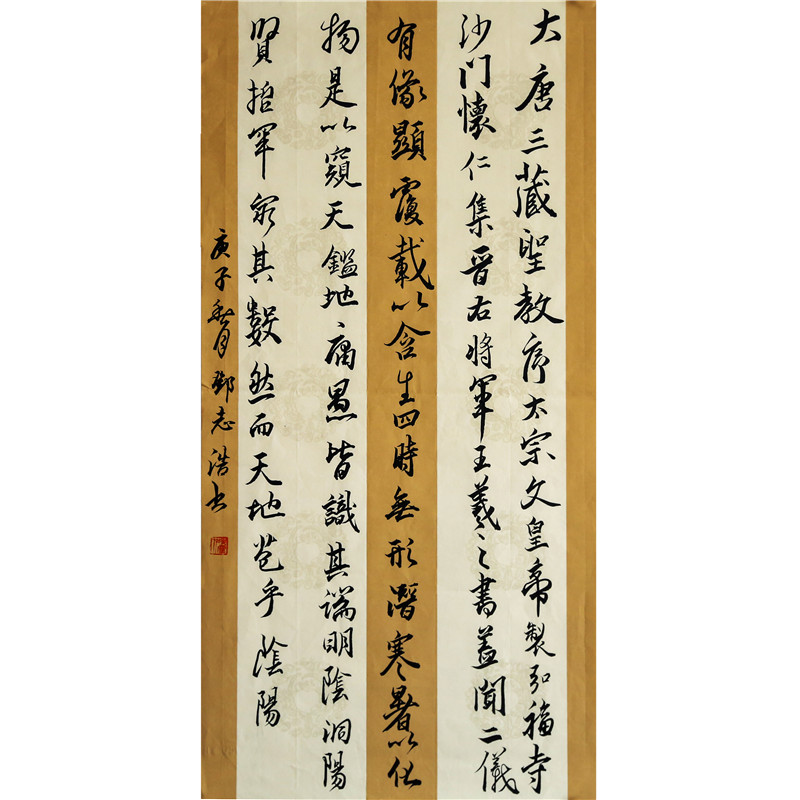 大唐三藏聖教序太宗文皇帝製弘福寺
沙門懷仁集晉右將軍王羲之書蓋聞二儀
有像顯覆載以含生四時無形潛寒暑以化
物是以窺天鑑地庸愚皆識其端明陰洞陽
賢哲罕窮其數然而天地苞乎陰陽
庚子春月鄧志浩書